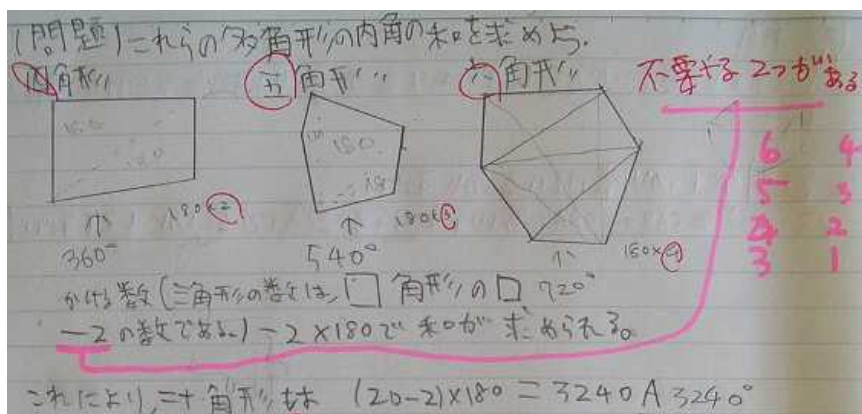 (問題)これらの多角形の内角の和を求めよ.
四角形 五角形 六角形 不要する2つがある
180 180 180 180
6 4
5 3
4 2
3 1
180×2 180×3 180×4
360° 540° 720°
かける数(三角形の数は、□角形の□
-2の数である。)-2×180で和が求められる。
これにより,二十角形は (20-2)×180=3240 A 3240°